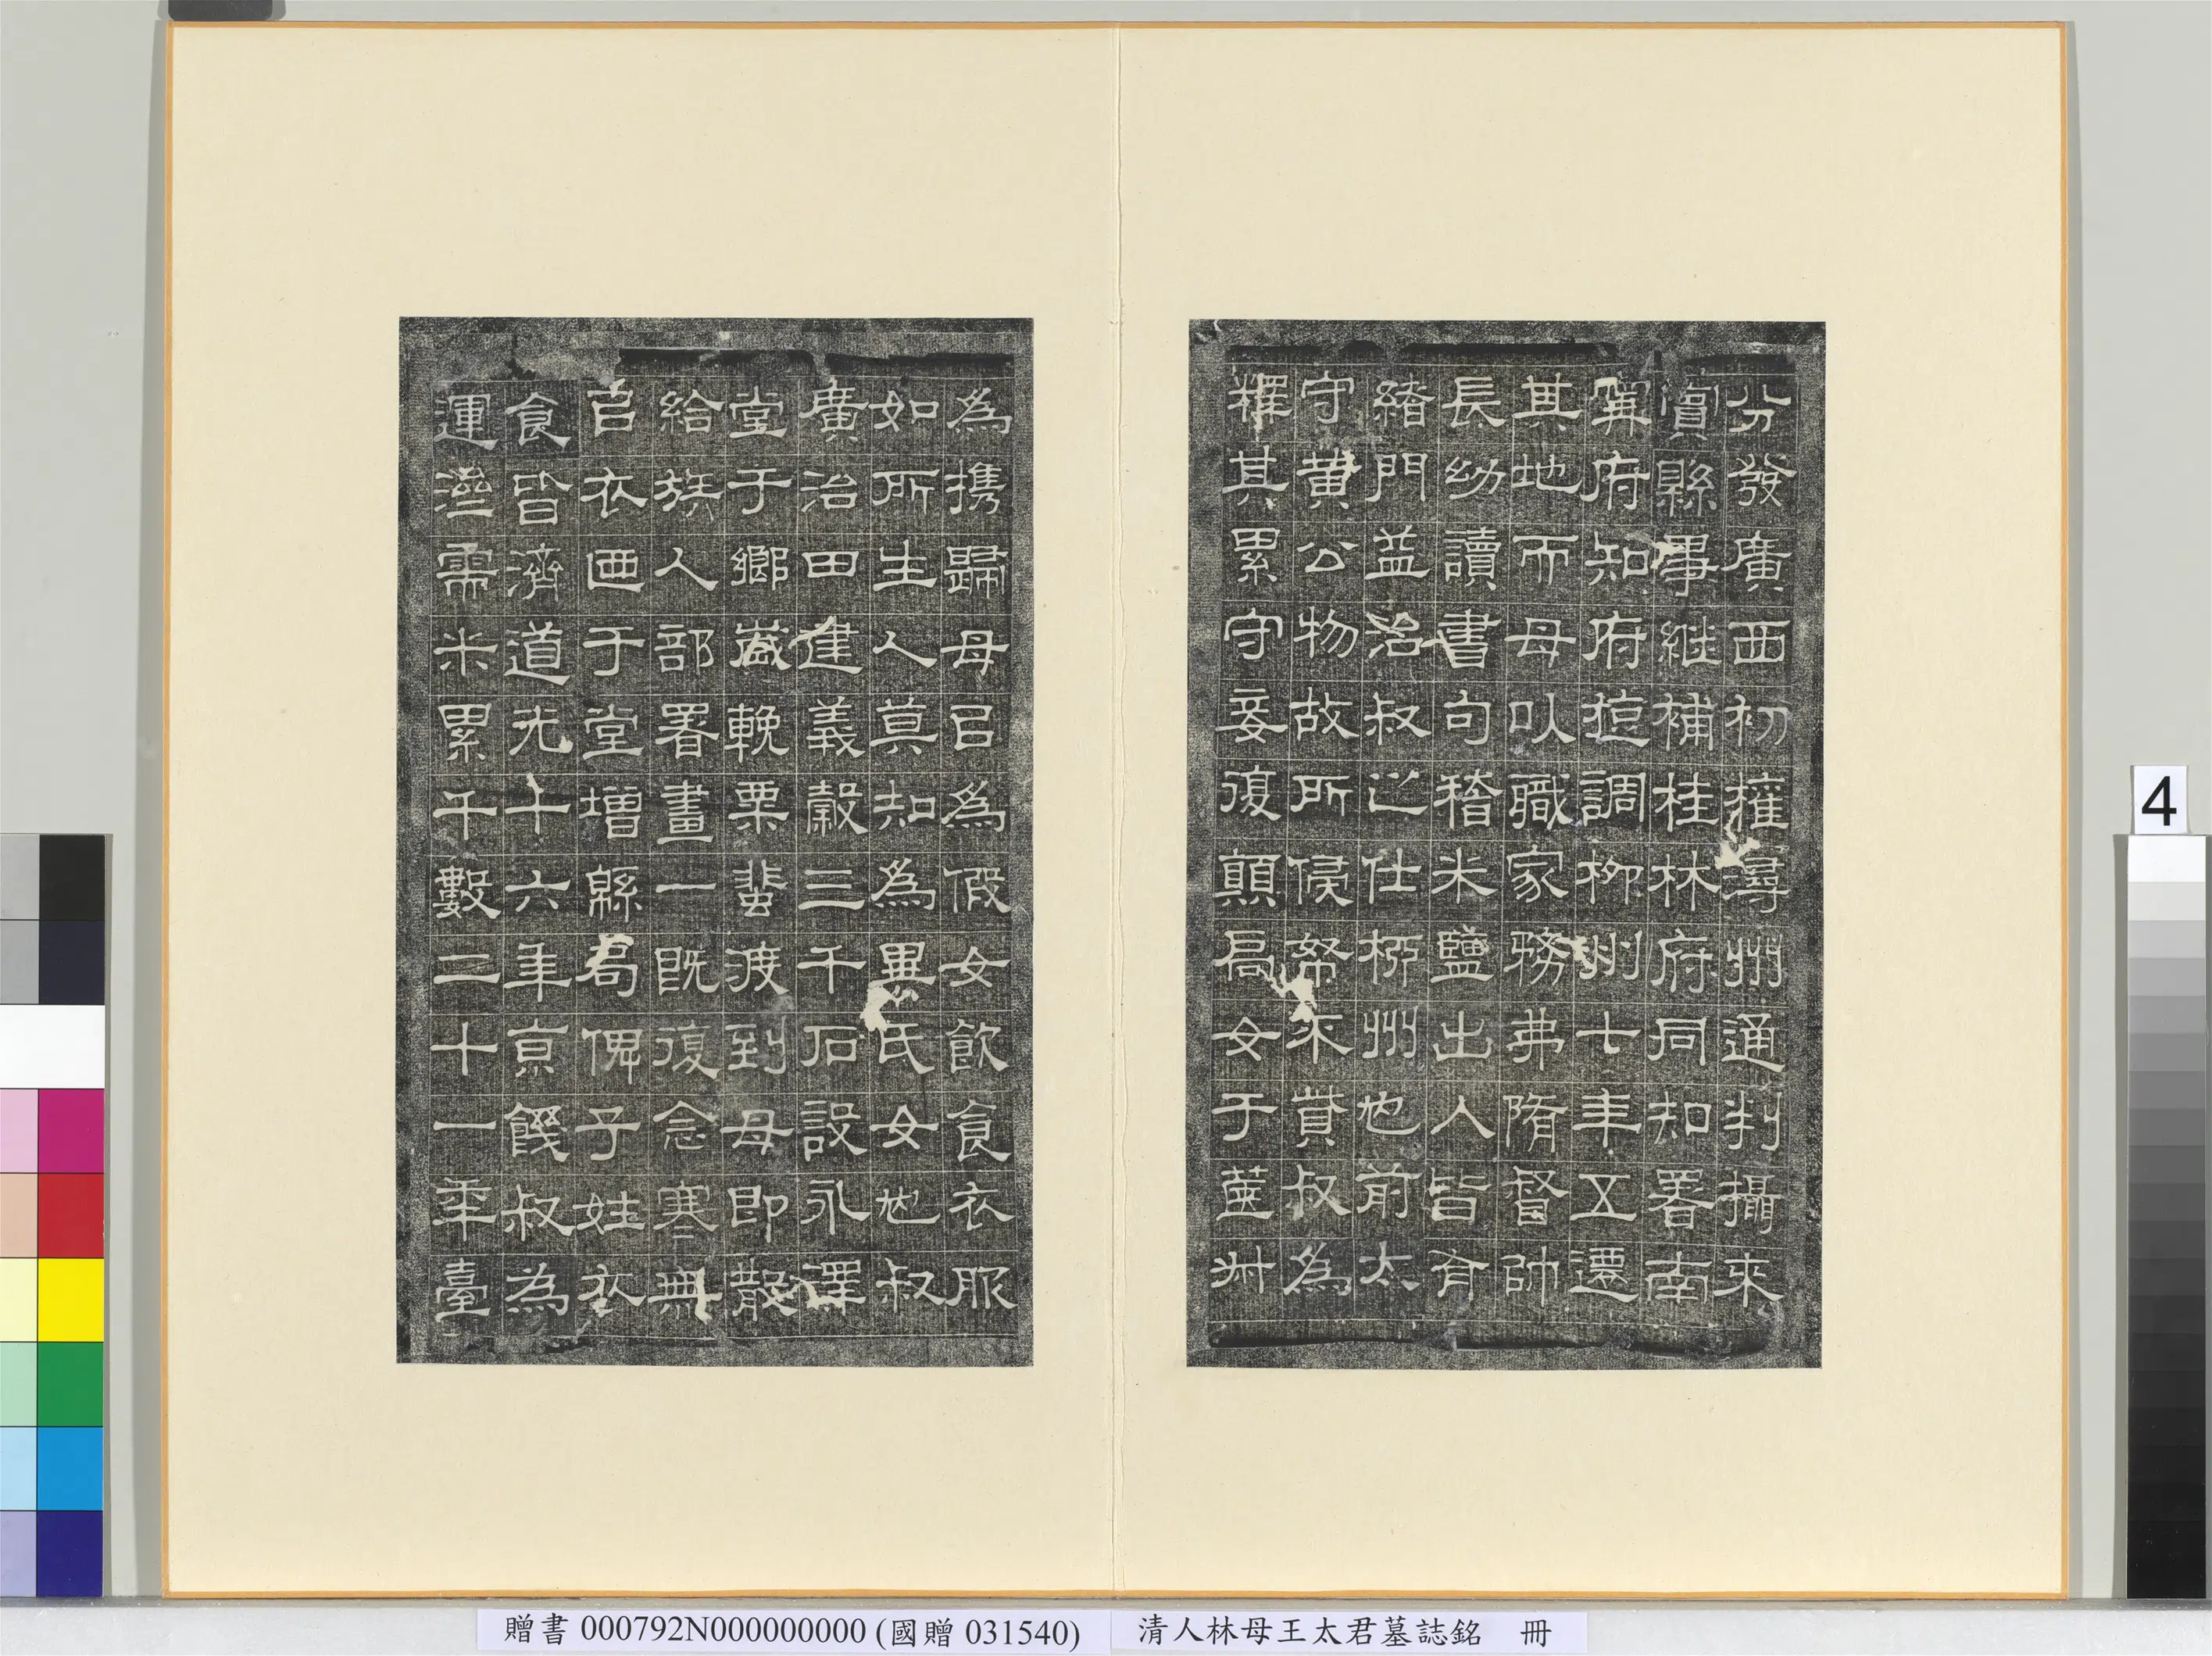 分發廣西初擢潯州通判攝來
賓縣事継補桂林府同知署南
寧府知府調柳州七年五遷
其地而母以職家務弗隋督帥
長幼讀書句稽米鹽出入皆有
緒門益治叔之仕柳州也前太
守黃公物故所侯帑不貲叔為
釋其累守妾復顛女于艸
為携歸母㠯為假女飲食衣服
如所生人莫知為畢氏女也叔
廣治田進義穀三千石設永澤
堂于鄉歲輓粟蜚渡到母即散
給族人部署畫一既復念寒無
㠯衣迺于堂增緜局俾子姓衣
食皆濟道光十六年京饑叔為
運需米累千數二十一年臺
4
贈書 000792N000000000 (國贈 031540)
清人林母王太君墓誌銘 冊